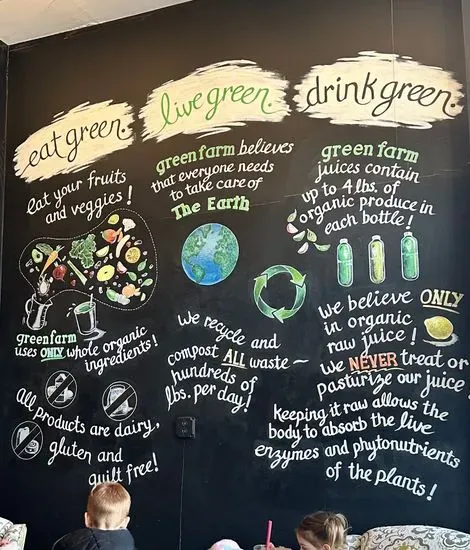 eat green.
eat your fruits
and veggies!
greenfarm
uses ONLY whole organic
ingredients!
All products are dairy,
gluten and
guilt free!
live green.
greenfarm believes
that everyone needs
to take care of
The Earth
We recycle and
compost ALL waste –
hundreds of
lbs. per day!
drink green.
green farm
juices contain
up to 4 lbs. of
organic produce in
each bottle!
We believe ONLY
in organic
raw juice!
We NEVER treat or
pasturize our juice.
keeping it raw allows the
body to absorb the live
enzymes and phytonutrients
of the plants!